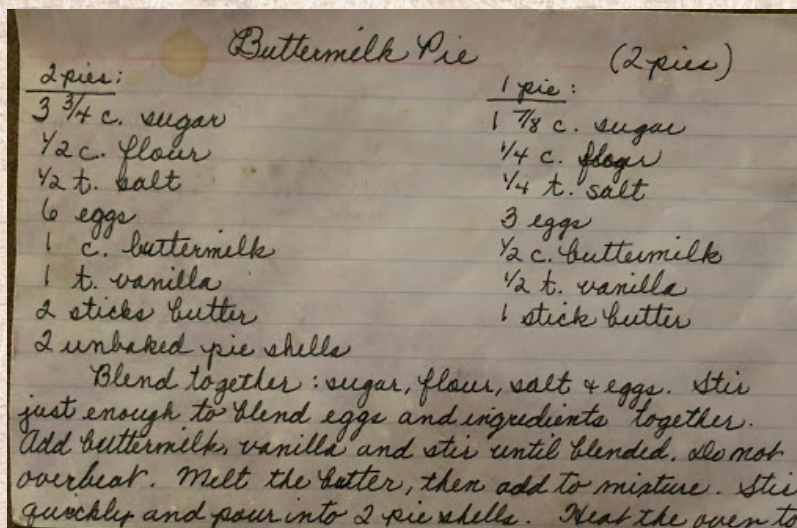 Buttermilk Pie (2 pies)
2 pies:
3 3/4 c. sugar
1/2 c. flour
1/2 t. salt
6 eggs
1 c. buttermilk
1 t. vanilla
2 sticks butter
2 unbaked pie shells
1 pie:
1 7/8 c. sugar
1/4 c. flour
1/4 t. salt
3 eggs
1/2 c. buttermilk
1/2 t. vanilla
1 stick butter
Blend together: sugar, flour, salt & eggs. Stir
just enough to blend eggs and ingredients together.
Add buttermilk, vanilla and stir until blended. Do not
overbeat. Melt the butter, then add to mixture. Stir
quickly and pour into 2 pie shells. Heat the oven to